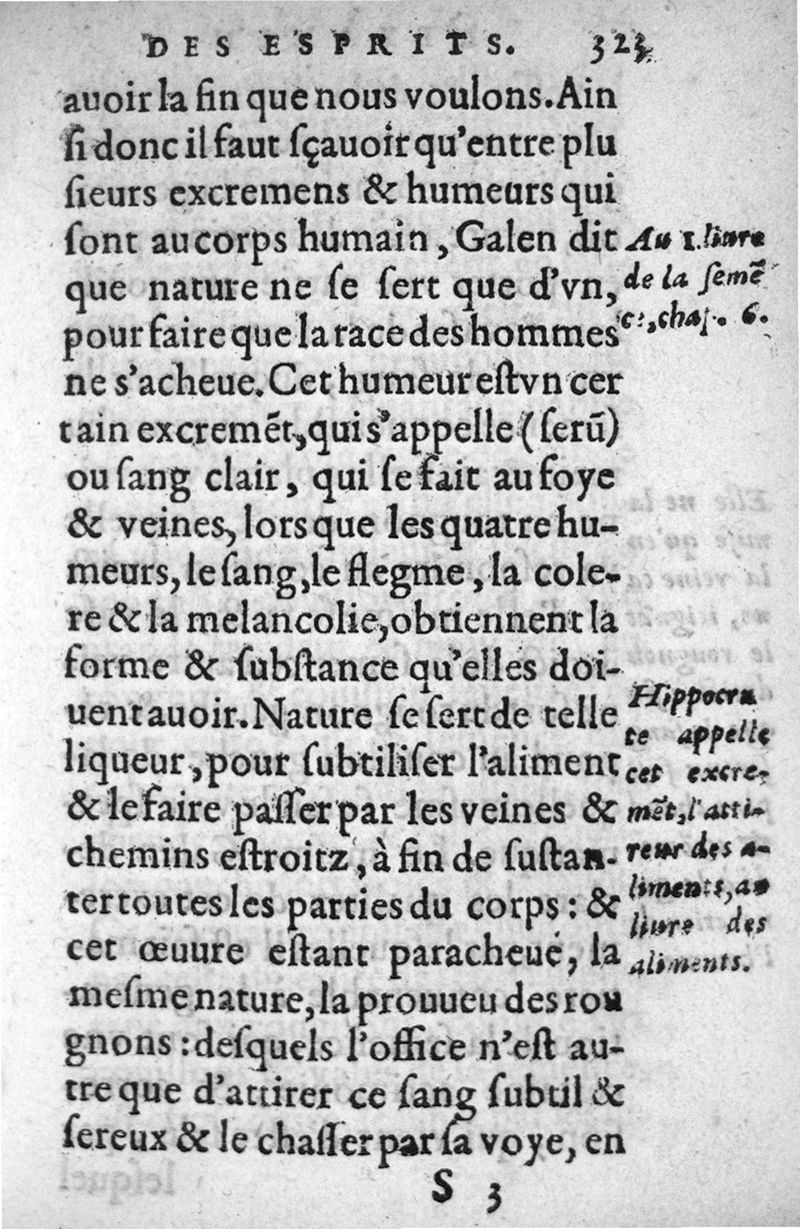 DES ESPRITS. 323
auoir la fin que nous voulons. Ain
ſi donc il faut ſçauoir qu'entre plu
ſieurs excremens & humeurs qui
ſont au corps humain, Galen dit
que nature ne ſe ſert que d'vn,
pour faire que la race des hommes
ne s'acheue. Cet humeur eſt vn cer
tain excremẽt, qui s'appelle (ſerũ)
ou ſang clair, qui ſe fait au foye
& veines, lors que les quatre hu-
meurs, le ſang, le flegme, la cole-
re & la melancolie, obtiennent la
forme & ſubſtance qu'elles doi-
uent auoir. Nature ſe ſert de telle
liqueur, pour ſubtiliſer l'aliment
& le faire paſſer par les veines &
chemins eſtroitz, à fin de ſuſtan-
ter toutes les parties du corps : &
cet œuure eſtant paracheué, la
meſme nature, la prouueu des rou
gnons : deſquels l'office n'eſt au-
tre que d'attirer ce ſang ſubtil &
ſereux & le chaſſer par ſa voye, en
S 3
Au 1. liure
de la ſemẽ
ce, chap. 6.
Hippocra
te appelle
cet excre-
mẽt, l'atti-
reur des a-
liments, au
liure des
aliments.